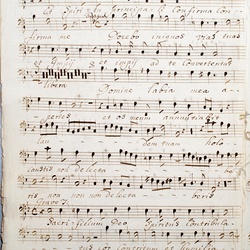 et Spiritu Principali Confirma con
firma me Docebo iniquos vias tuas
et Impij et impij ad te convertentur
libera Domine labia mea a
peries et os meum annuntia
lau dem tuam holo
caustis non delecta be
ris non non delecta beris
Grave
Sacrificium Deo Spiritus Contribula
tus cor Contritum et humilia